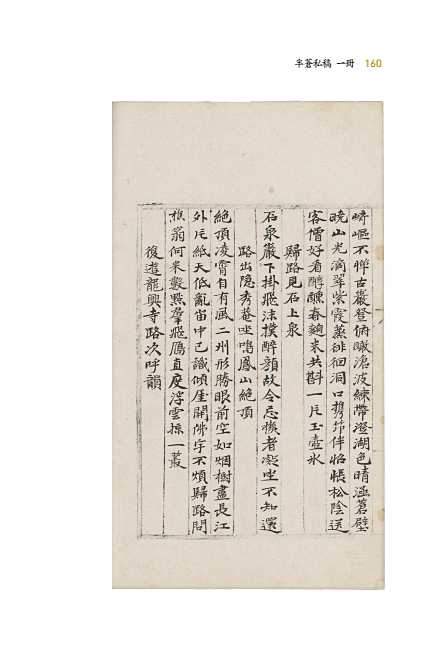 半蒼私稿 一冊 160
崎嶇不憚古巖登俯瞰滄波練帶澄湖色晴涵蒼壁
曉山光滴翠紫霞蒸徘徊洞口携笻伴怊悵松陰送
客僧好看醇醲春麴米共斟一片玉壺氷
歸路見石上泉
石泉巖下掛飛沫撲醉顏故令忘機者凝坐不知還
路出隱秀菴坐鳴鳳山絶頂
絶頂凌霄自有風二州形勝眼前空如烟樹畫長江
外片紙天低亂岫中已識傾崖開佛宇不煩歸路問
樵翁何來數點羣飛鴈直度浮雲掠一叢
復遊龍興寺路次呼韻